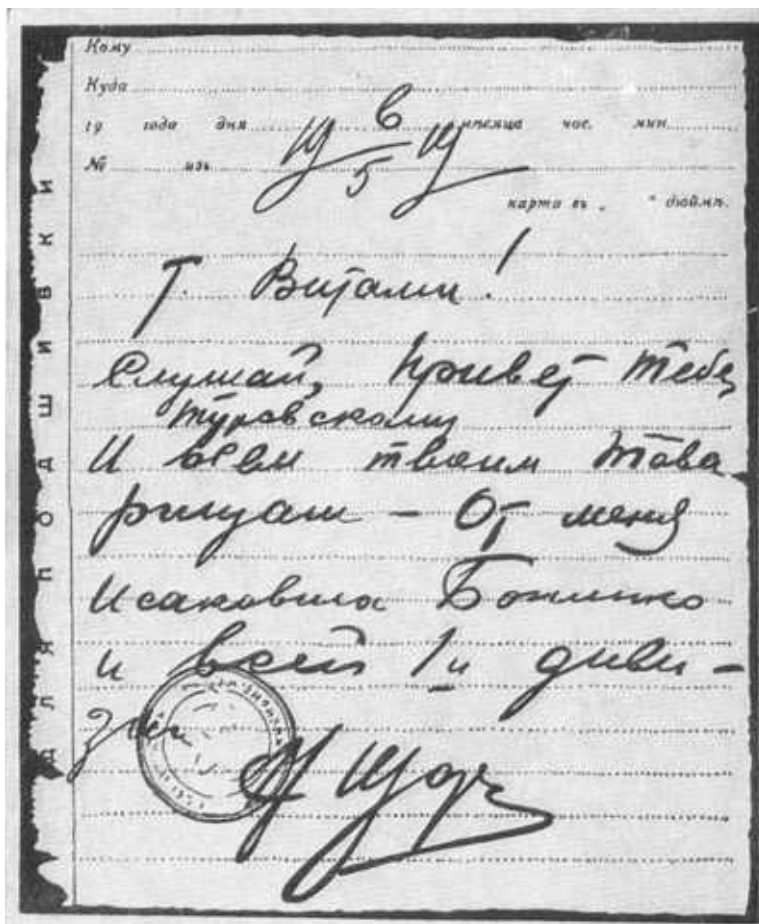 Кому
Куда
19 года дня мѣсяца час. мин.
№ изъ
карта въ „ “ дюймѣ.
Т. Виталий!
Слушай, привет тебе,
Туровскому
И всем твоим това
рищам – От меня
Исаковича Боженко
и всей 1й диви –
зии
Н Щорс
ДЛЯ ПОДШИВКИ